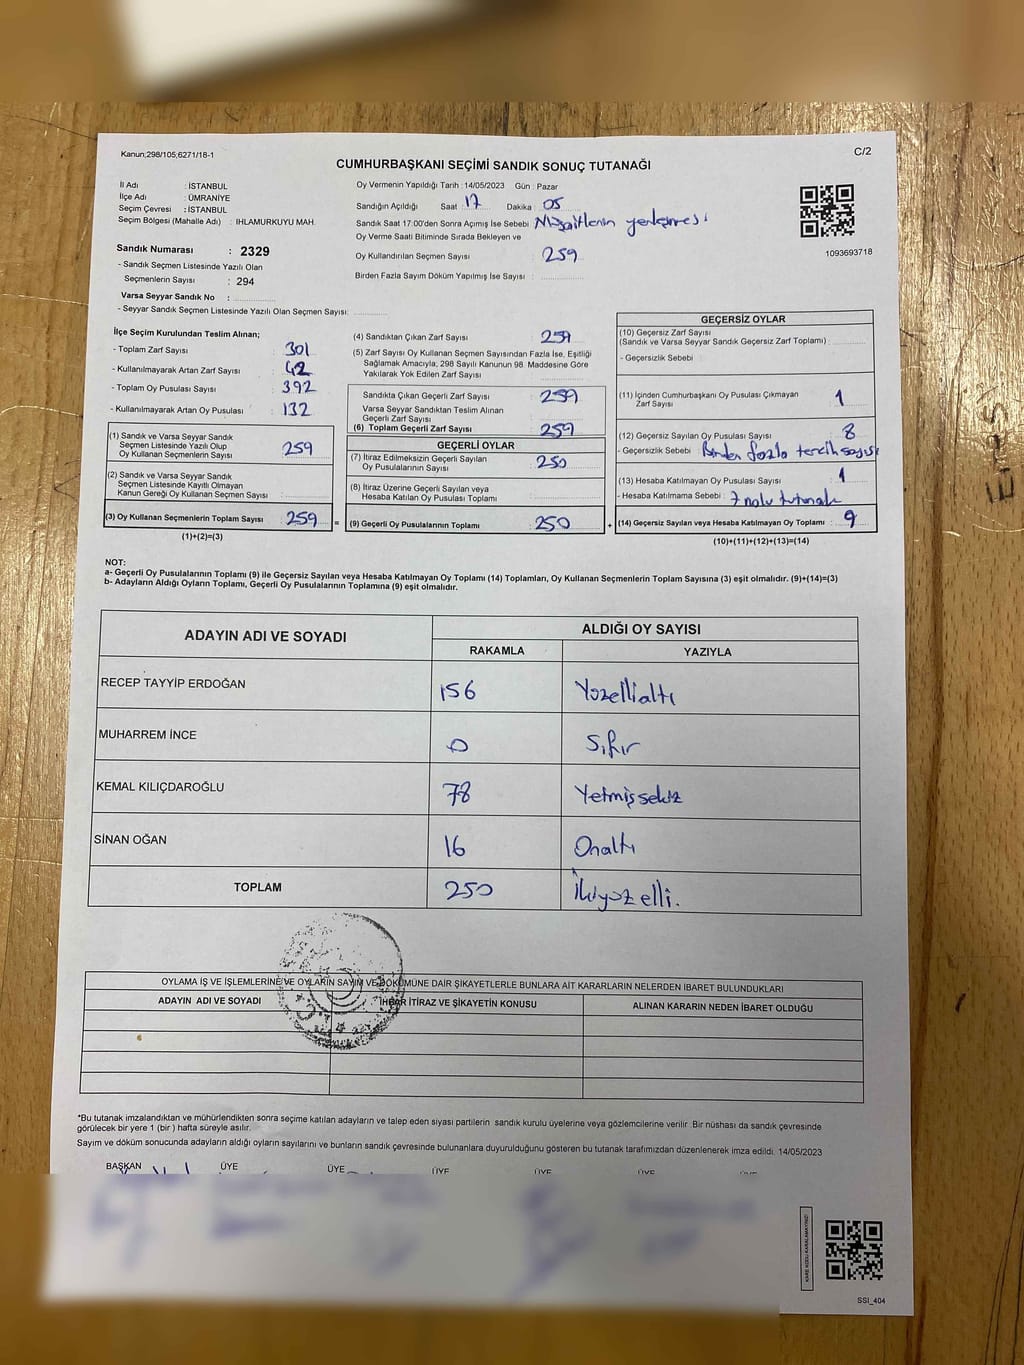 Kanun;298/105;6271/18-1
C/2
CUMHURBAŞKANI SEÇİMİ SANDIK SONUÇ TUTANAĞI
İl Adı : İSTANBUL
İlçe Adı : ÜMRANİYE
Seçim Çevresi : İSTANBUL
Seçim Bölgesi (Mahalle Adı) : IHLAMURKUYU MAH.
Sandık Numarası : 2329
- Sandık Seçmen Listesinde Yazılı Olan
Seçmenlerin Sayısı : 294
Varsa Seyyar Sandık No :
- Seyyar Sandık Seçmen Listesinde Yazılı Olan Seçmen Sayısı:
Oy Vermenin Yapıldığı Tarih : 14/05/2023 Gün : Pazar
Sandığın Açıldığı Saat 17 Dakika : 05
Sandık Saat 17:00'den Sonra Açımış İse Sebebi :
Oy Verme Saati Bitiminde Sırada Bekleyen ve
Oy Kullandırılan Seçmen Sayısı : 259
Birden Fazla Sayım Döküm Yapılmış İse Sayısı :
1093693718
İlçe Seçim Kurulundan Teslim Alınan;
- Toplam Zarf Sayısı : 301
- Kullanılmayarak Artan Zarf Sayısı : 42
- Toplam Oy Pusulası Sayısı : 392
- Kullanılmayarak Artan Oy Pusulası : 132
(1) Sandık ve Varsa Seyyar Sandık
Seçmen Listesinde Yazılı Olup
Oy Kullanan Seçmenlerin Sayısı : 259
(2) Sandık ve Varsa Seyyar Sandık
Seçmen Listesinde Kayıtlı Olmayan
Kanun Gereği Oy Kullanan Seçmen Sayısı :
(3) Oy Kullanan Seçmenlerin Toplam Sayısı : 259 =
(1)+(2)=(3)
(4) Sandıktan Çıkan Zarf Sayısı : 259
(5) Zarf Sayısı Oy Kullanan Seçmen Sayısından Fazla İse, Eşitliği
Sağlamak Amacıyla; 298 Sayılı Kanunun 98. Maddesine Göre
Yakılarak Yok Edilen Zarf Sayısı :
Sandıkta Çıkan Geçerli Zarf Sayısı : 259
Varsa Seyyar Sandıktan Teslim Alınan
Geçerli Zarf Sayısı :
(6) Toplam Geçerli Zarf Sayısı : 259
GEÇERLİ OYLAR
(7) İtiraz Edilmeksizin Geçerli Sayılan
Oy Pusulalarının Sayısı : 250
(8) İtiraz Üzerine Geçerli Sayılan veya
Hesaba Katılan Oy Pusulası Toplamı :
(9) Geçerli Oy Pusulalarının Toplamı : 250 +
GEÇERSİZ OYLAR
(10) Geçersiz Zarf Sayısı
(Sandık ve Varsa Seyyar Sandık Geçersiz Zarf Toplamı) :
- Geçersizlik Sebebi :
(11) İçinden Cumhurbaşkanı Oy Pusulası Çıkmayan
Zarf Sayısı : 1
(12) Geçersiz Sayılan Oy Pusulası Sayısı : 8
- Geçersizlik Sebebi : Birden fazla tercih
(13) Hesaba Katılmayan Oy Pusulası Sayısı : 1
- Hesaba Katılmama Sebebi : 7 nolu tutanak
(14) Geçersiz Sayılan veya Hesaba Katılmayan Oy Toplamı : 9
(10)+(11)+(12)+(13)=(14)
NOT:
a- Geçerli Oy Pusulalarının Toplamı (9) ile Geçersiz Sayılan veya Hesaba Katılmayan Oy Toplamı (14) Toplamları, Oy Kullanan Seçmenlerin Toplam Sayısına (3) eşit olmalıdır. (9)+(14)=(3)
b- Adayların Aldığı Oyların Toplamı, Geçerli Oy Pusulalarının Toplamına (9) eşit olmalıdır.
ADAYIN ADI VE SOYADI
ALDIĞI OY SAYISI
RAKAMLA YAZIYLA
RECEP TAYYİP ERDOĞAN 156 Yüzellialtı
MUHARREM İNCE 0 Sıfır
KEMAL KILIÇDAROĞLU 78 Yetmişsekiz
SİNAN OĞAN 16 Onaltı
TOPLAM 250 İkiyüzelli.
OYLAMA İŞ VE İŞLEMLERİNE VE OYLARIN SAYIM VE DÖKÜMÜNE DAİR ŞİKAYETLERLE BUNLARA AİT KARARLARIN NELERDEN İBARET BULUNDUKLARI
ADAYIN ADI VE SOYADI İHBAR İTİRAZ VE ŞİKAYETİN KONUSU ALINAN KARARIN NEDEN İBARET OLDUĞU
*Bu tutanak imzalandıktan ve mühürlendikten sonra seçime katılan adayların ve talep eden siyasi partilerin sandık kurulu üyelerine veya gözlemcilerine verilir. Bir nüshası da sandık çevresinde
görülecek bir yere 1 (bir) hafta süreyle asılır.
Sayım ve döküm sonucunda adayların aldığı oyların sayılarını ve bunların sandık çevresinde bulunanlara duyurulduğunu gösteren bu tutanak tarafımızdan düzenlenerek imza edildi. 14/05/2023
BAŞKAN ÜYE ÜYE ÜYE ÜYE ÜYE ÜYE
KARE KODU KARALAMAYINIZ!
SSİ_404